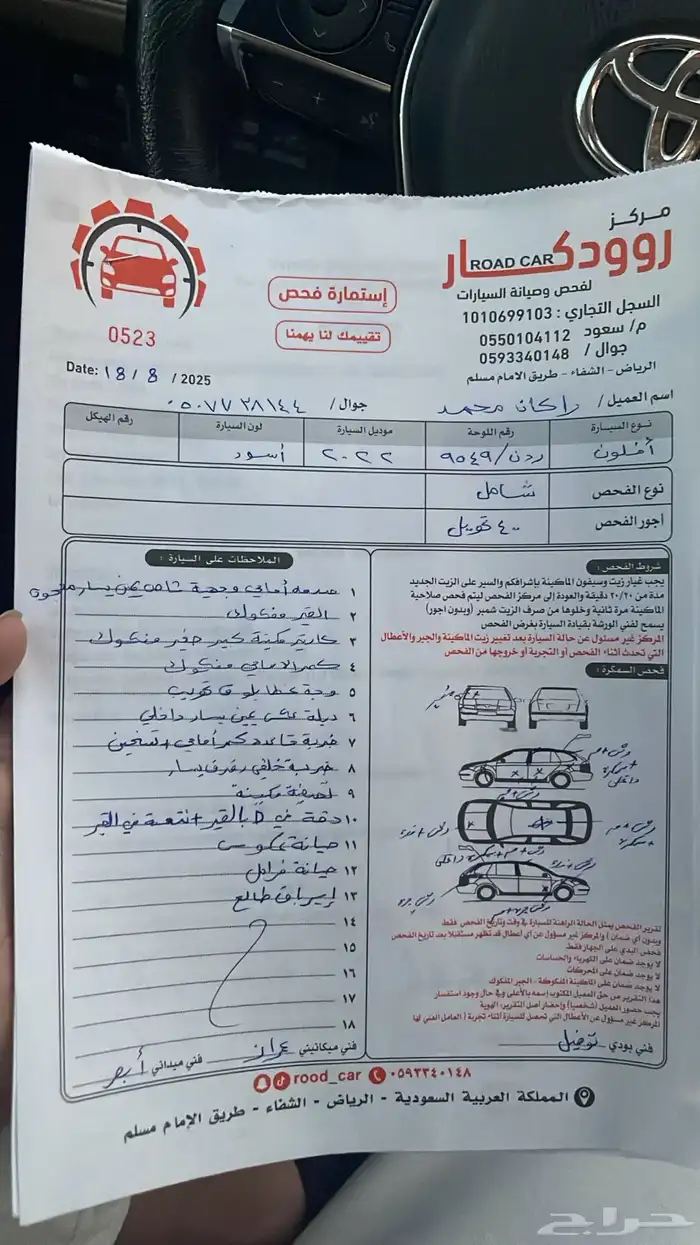 مركز
روودكار
ROAD CAR
لفحص وصيانة السيارات
السجل التجاري : 1010699103
م/ سعود 0550104112
جوال / 0593340148
الرياض - الشفاء - طريق الامام مسلم
إستمارة فحص
تقييمك لنا يهمنا
0523
Date: 18 / 8 / 2025
اسم العميل / راكان محمد جوال / ٠٥٠٧٧٣٨١٤٤
نوع السيارة رقم اللوحة موديل السيارة لون السيارة رقم الهيكل
أفلون ردن/٩٥٤٩ ٢٠٢٢ أسود
نوع الفحص شامل
أجور الفحص ٤٠٠ تحويل
شروط الفحص :
يجب غيار زيت وسيفون الماكينة بإشرافكم والسير على الزيت الجديد
مدة من ٢٠/٣٠ دقيقة والعودة إلى مركز الفحص ليتم فحص صلاحية
الماكينة مرة ثانية وخلوها من صرف الزيت شمبر (وبدون اجور)
يسمح لفني الورشة بقيادة السيارة بغرض الفحص
المركز غير مسئول عن حالة السيارة بعد تغيير زيت الماكينة والجير والأعطال
التي تحدث أثناء الفحص أو التجربة أو خروجها من الفحص
فحص السمكرة :
تقرير الفحص يمثل الحالة الراهنة للسيارة في وقت وتاريخ الفحص فقط
وبدون أي ضمان / والمركز غير مسؤول عن أي أعطال قد تظهر مستقبلا بعد تاريخ الفحص
فحص البدي على الجهاز فقط
لا يوجد ضمان على الكهرباء والحساسات
لا يوجد ضمان على المحركات
لا يوجد ضمان على الماكينة المفكوكة - الجير المفكوك
هذا التقرير من حق العميل المكتوب إسمه بالأعلى وفي حال وجود استفسار
يجب حضور العميل (شخصيا) وإحضار أصل التقرير، الهوية
المركز غير مسئول عن الأعطال التي تحصل للسيارة أثناء تجربة ( العامل الفني لها
فني بودي
الملاحظات على السيارة :
١ صدمه أمامي وجهة شاص يمين يسار
٢ القير مفكوك
٣ كارتير مكينة كبير صغير مفكوك
٤ كمر الامامي مفكوك
٥ وجة غطا بلوف تهريب
٦ دبلة عكس يمين يسار داخلي
٧ ضربة قاعدة كمر أمامي +
٨ ضربة خلفي رفرف يسار
٩ تصفية مكينة
١٠ دقة في D بالقير + نتعة في القير
١١ صيانة عكوس
١٢ صيانة فرامل
١٣ إيرباق طالع
١٤
١٥
١٦
١٧
١٨
فني ميكانيتي
فني ميداني
rood_car ٠٥٩٣٣٤٠١٤٨
المملكة العربية السعودية - الرياض - الشفاء - طريق الإمام مسلم
حراج